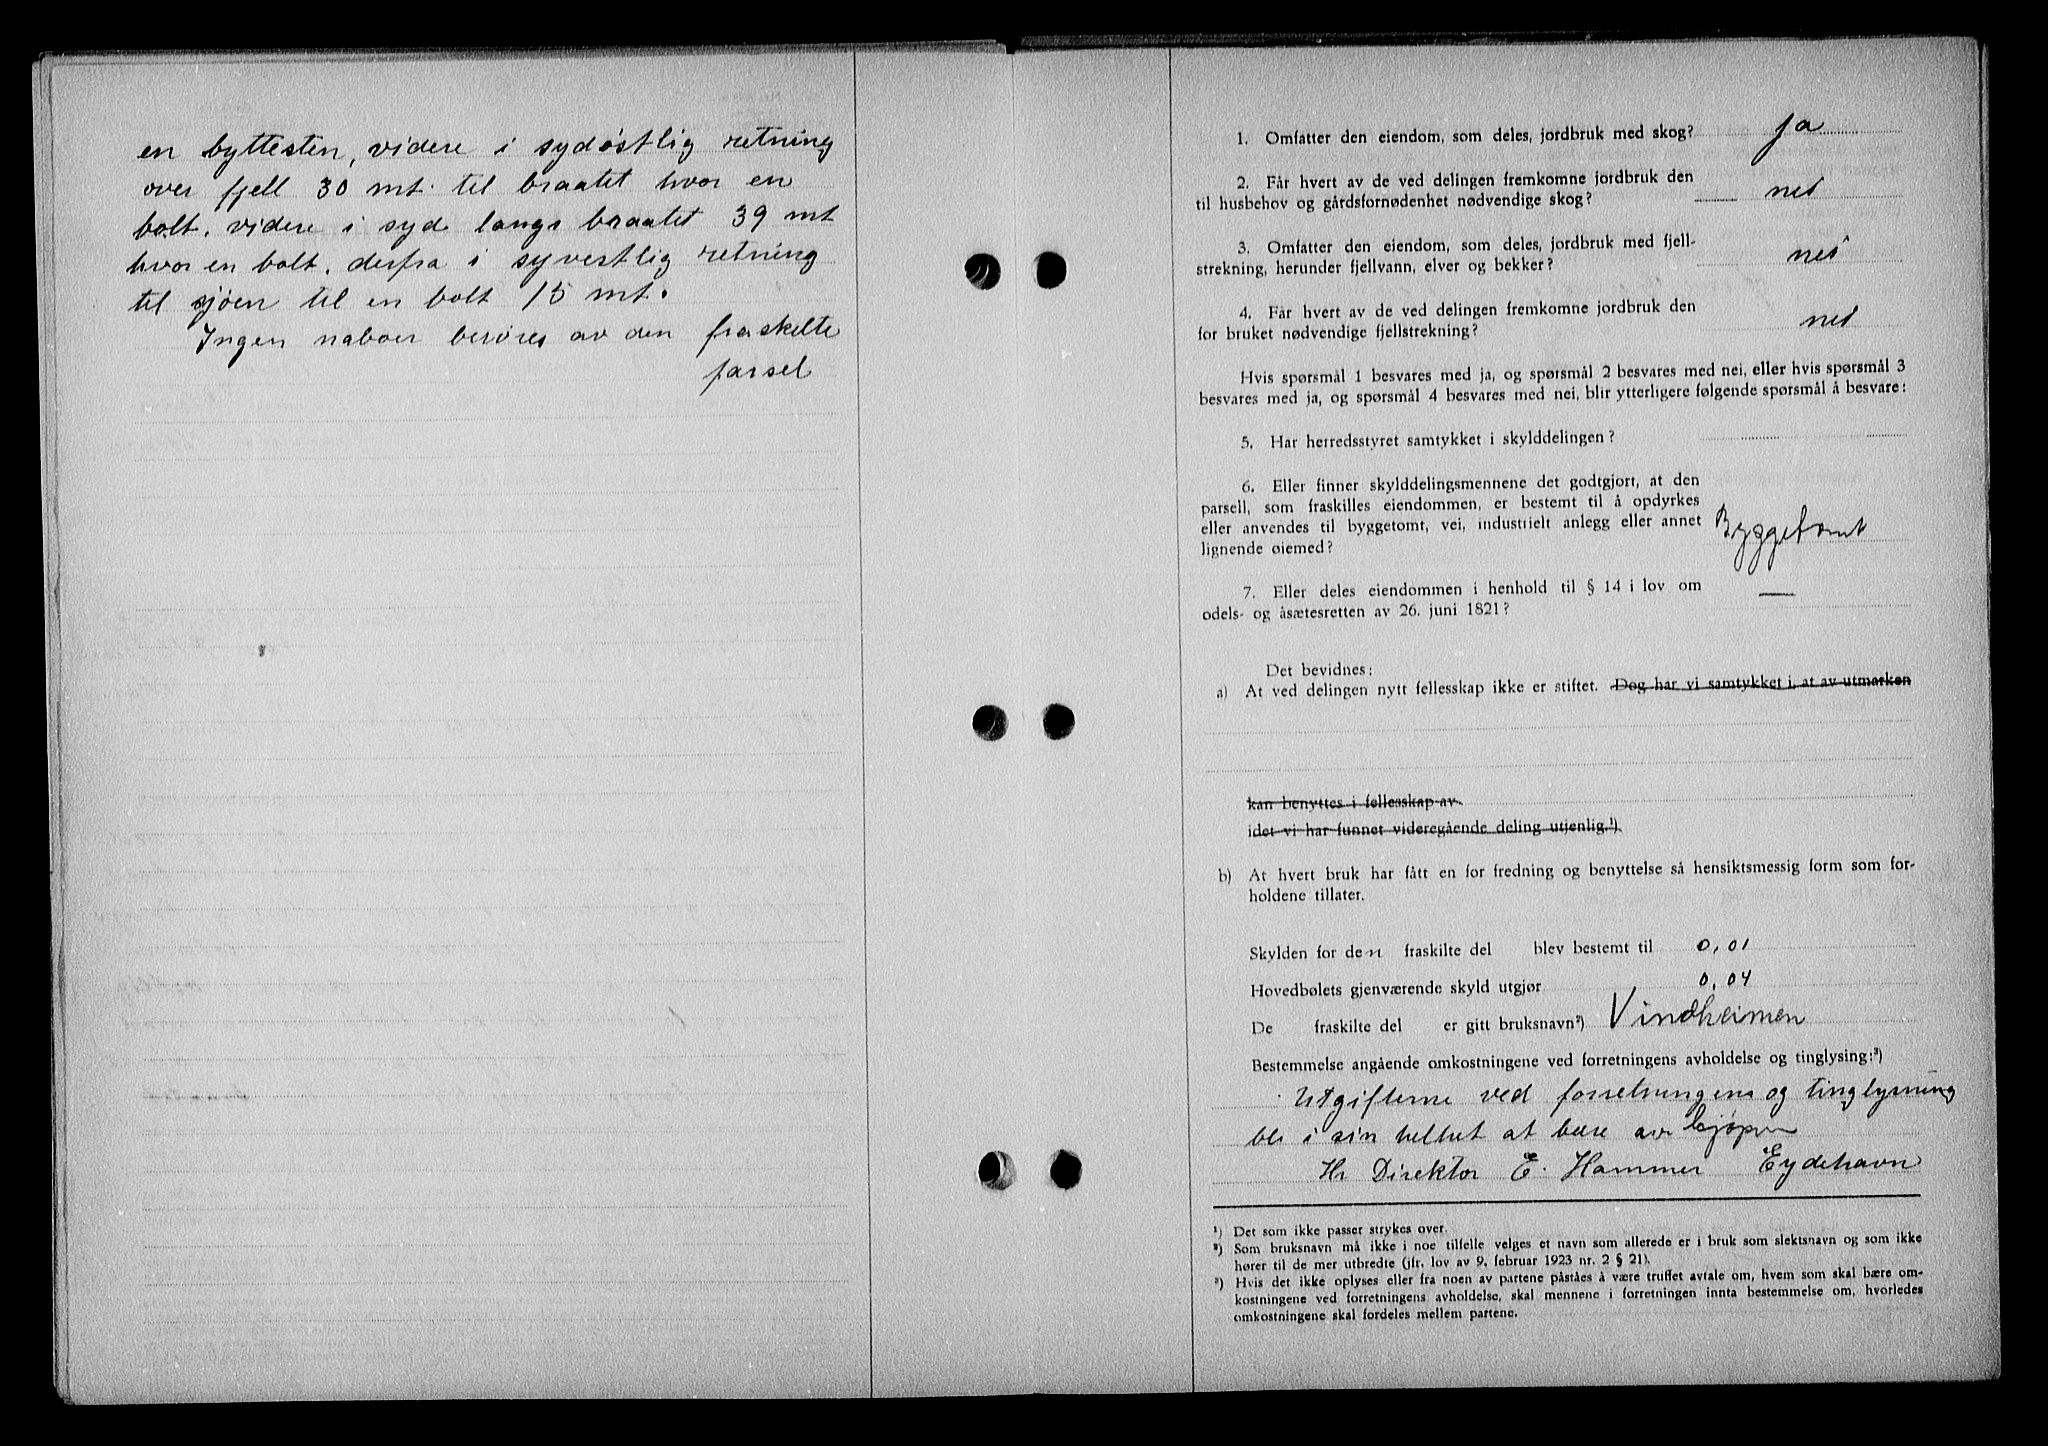 en byttesten, videre i sydøstlig retning
over fjell 30 mt. til braatet hvor en
bolt, videre i syd langs braatet 39 mt
hvor en bolt, derfra i syvestlig retning
til sjøen til en bolt 15 mt.
Ingen naboer berøres av den fraskelte
parsel
1. Omfatter den eiendom, som deles, jordbruk med skog? ja
2. Får hvert av de ved delingen fremkomne jordbruk den
til husbehov og gårdsfornødenhet nødvendige skog? nei
3. Omfatter den eiendom, som deles, jordbruk med fjell-
strekning, herunder fjellvann, elver og bekker? nei
4. Får hvert av de ved delingen fremkomne jordbruk den
for bruket nødvendige fjellstrekning? nei
Hvis spørsmål 1 besvares med ja, og spørsmål 2 besvares med nei, eller hvis spørsmål 3
besvares med ja, og spørsmål 4 besvares med nei, blir ytterligere følgende spørsmål å besvare:
5. Har herredsstyret samtykket i skylddelingen?
6. Eller finner skylddelingsmennene det godtgjort, at den
parsell, som fraskilles eiendommen, er bestemt til å opdyrkes
eller anvendes til byggetomt, vei, industrielt anlegg eller annet
lignende øiemed? Byggetomt
7. Eller deles eiendommen i henhold til § 14 i lov om —
odels- og åsætesretten av 26. juni 1821?
Det bevidnes:
a) At ved delingen nytt fellesskap ikke er stiftet. Dog har vi samtykket i, at av utmarken
kan benyttes i fellesskap av
idet vi har funnet videregående deling utjenlig.¹)
b) At hvert bruk har fått en for fredning og benyttelse så hensiktsmessig form som for-
holdene tillater.
Skylden for den fraskilte del blev bestemt til 0,01
Hovedbølets gjenværende skyld utgjør 0,04
De fraskilte del er gitt bruksnavn²) Vindheimen
Bestemmelse angående omkostningene ved forretningens avholdelse og tinglysing:³)
Utgifterne ved forretningens og tinglysning
bli i sin helhet at bære av kjøper
Hr Direktor E. Hammer Eydehavn
¹) Det som ikke passer strykes over.
²) Som bruksnavn må ikke i noe tilfelle velges et navn som allerede er i bruk som slektsnavn og som ikke
hører til de mer utbredte (jfr. lov av 9. februar 1923 nr. 2 § 21).
³) Hvis det ikke oplyses eller fra noen av partene påståes å være truffet avtale om, hvem som skal bære om-
kostningene ved forretningens avholdelse, skal mennene i forretningen innta bestemmelse om, hvorledes
omkostningene skal fordeles mellem partene.